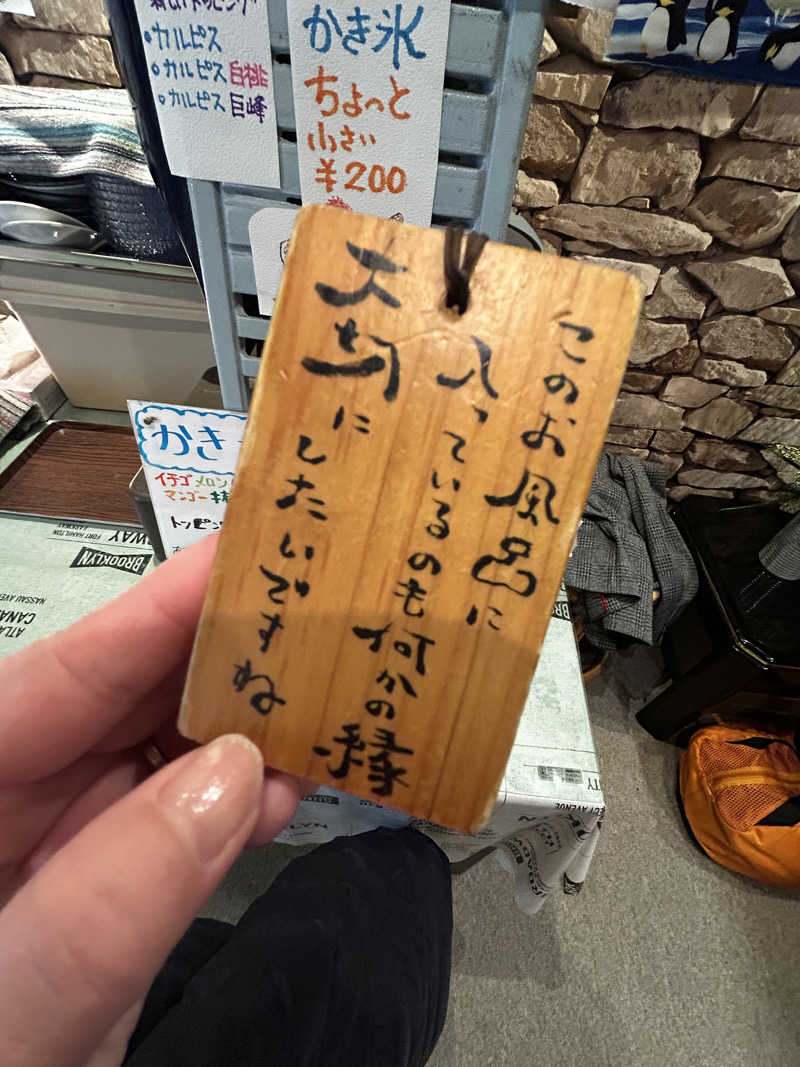 このお風呂に
入っているのも何かの縁
大切にしたいですね
・カルピス
・カルピス白桃
・カルピス巨峰
かき氷
ちょっと
小さい
¥200
かき
イチゴ メロン
マンゴー
トッピン
BROOKLYN
NASSAU AVE
FORT HAMILTON